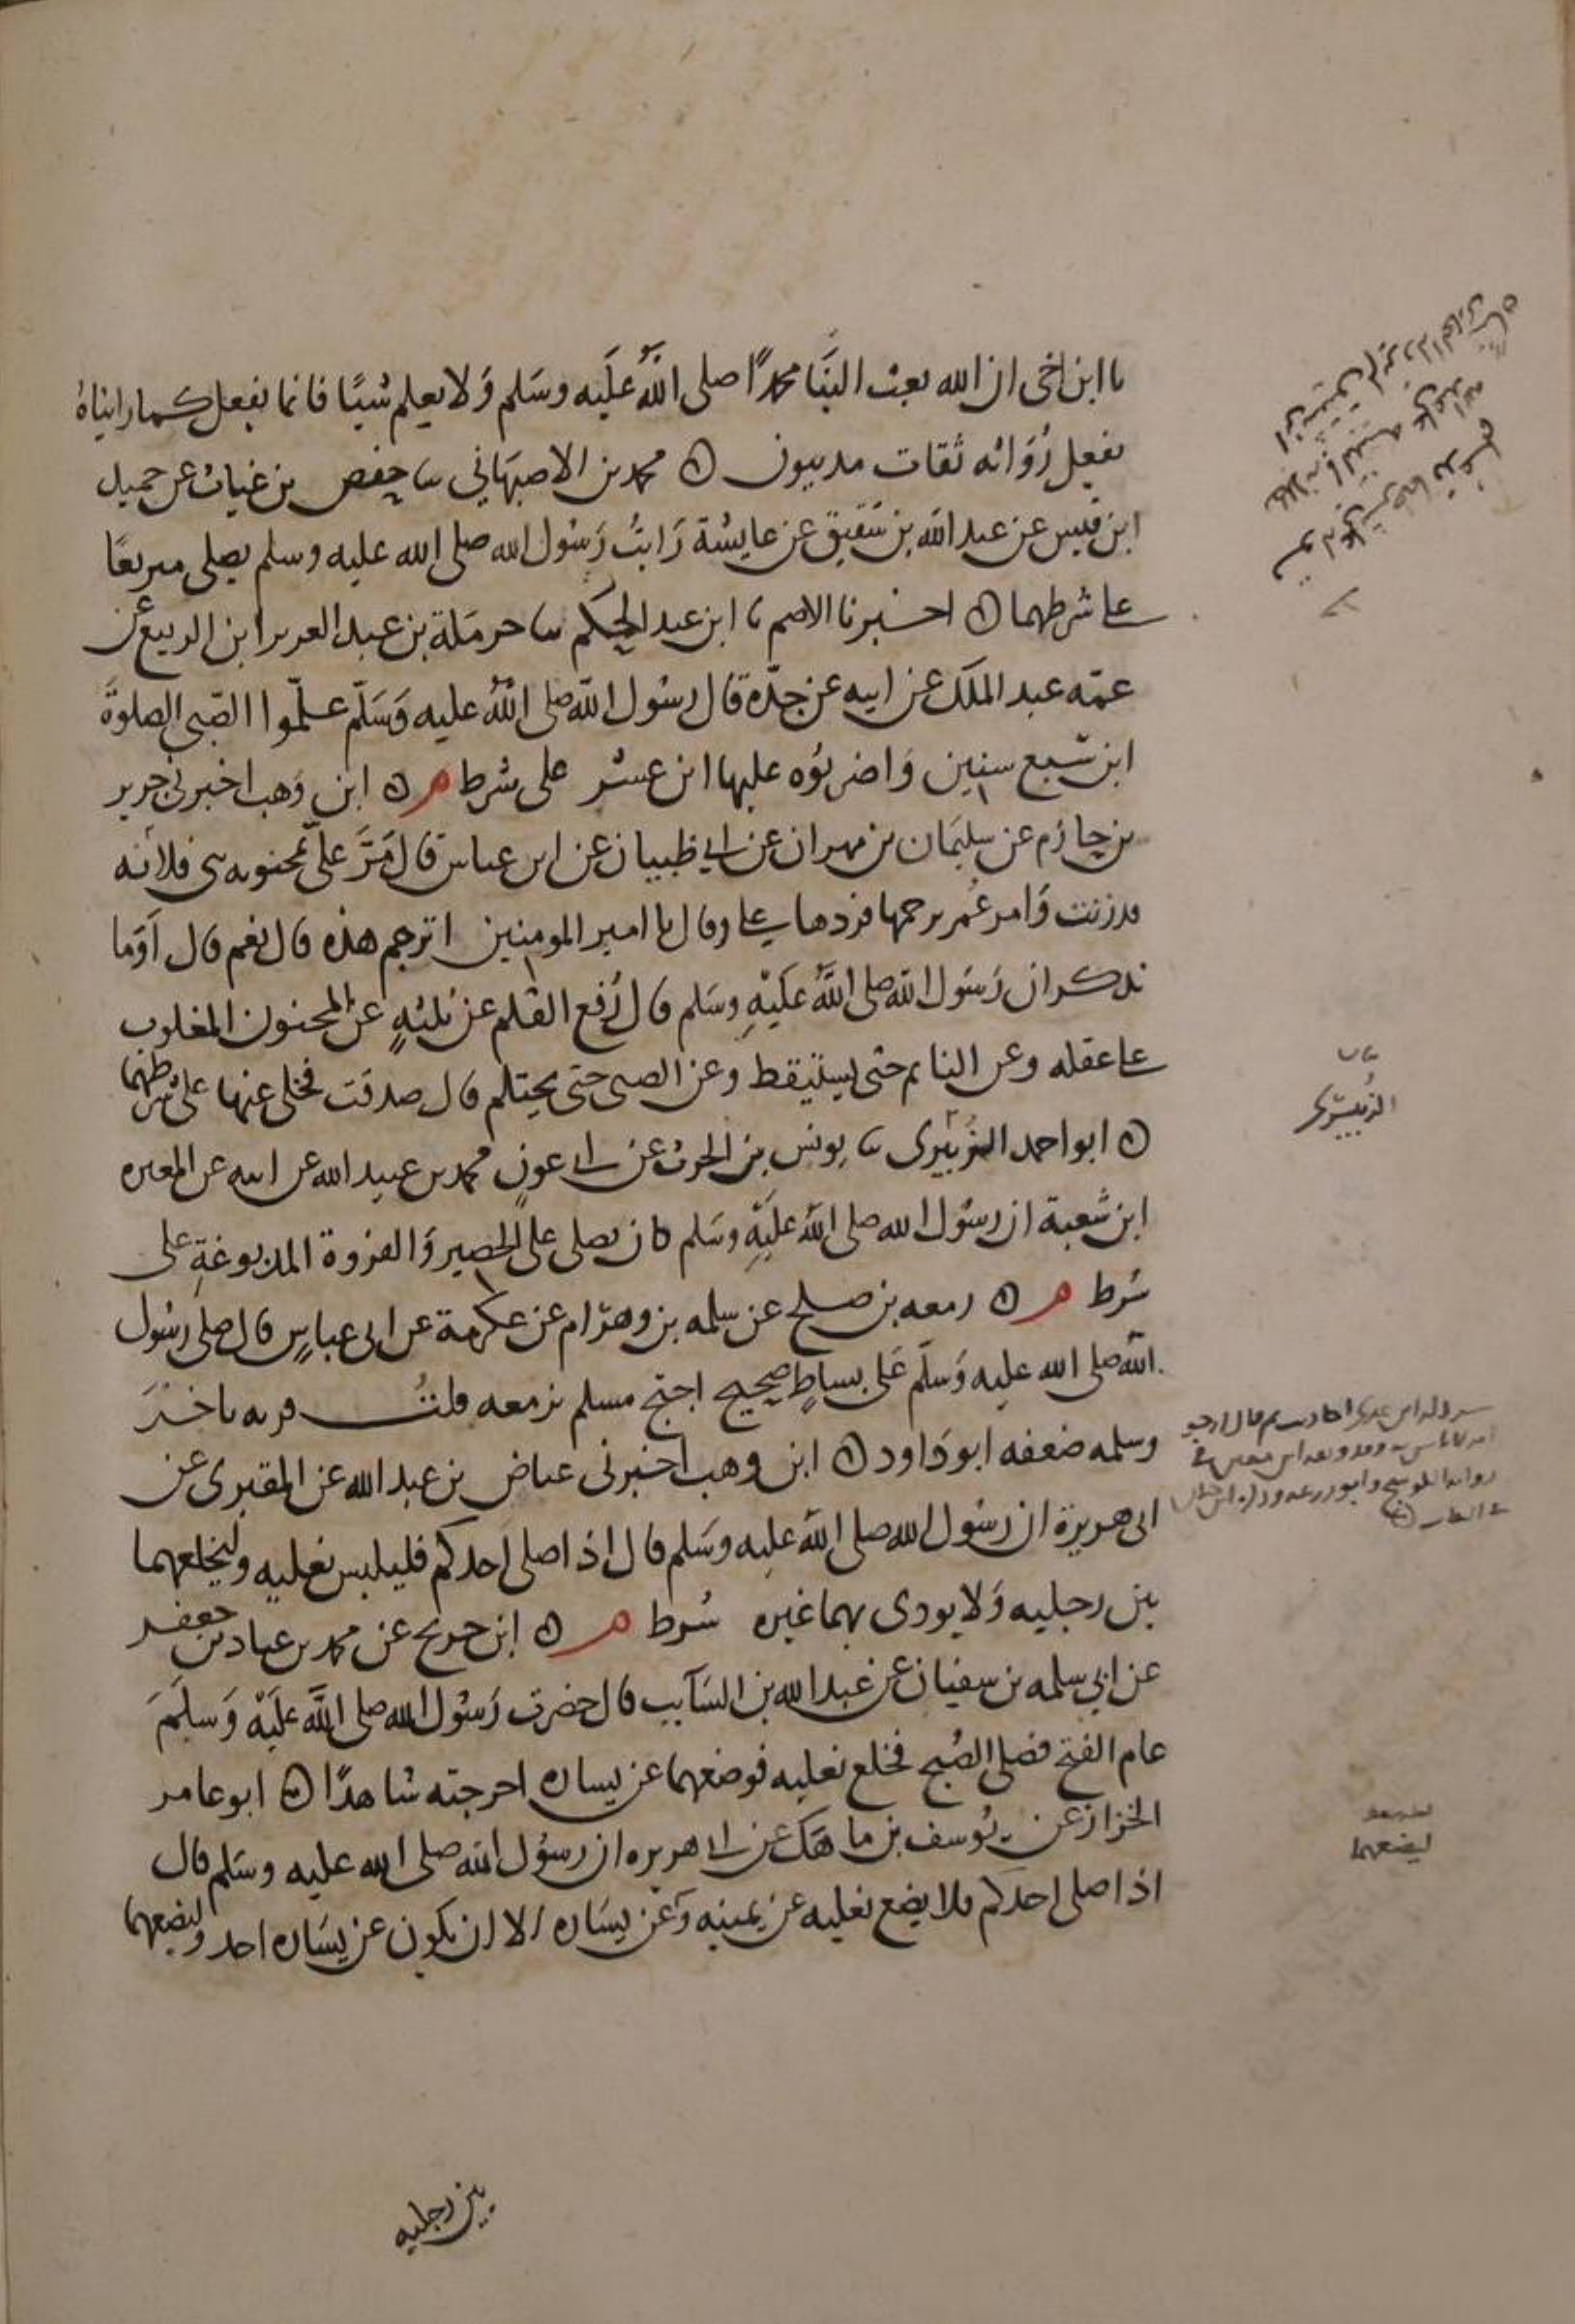 يا ابن اخى ان الله بعث الينا محمدًا صلى اللهُ عليه وسلم وَلا يعلم شيئًا فانما نفعل كما رايناهُ
يفعل رُوَاته ثقات مدنيون ۞ محمد بن الاصبهاني ثنا حفص بن غياث عن حميد
ابن قيس عن عبد الله بن شقيق عن عايشة رَايتُ رَسُول الله صلى الله عليه وسلم يصلى متربعًا
على شرطهما ۞ اخبرنا الاصم نا ابن عبد الحكم ثنا حرملة بن عبد العزيز ابن الربيع عن
عمّه عبد الملك عن ابيه عن جدّه قال رسُول الله صلى اللهُ عليه وَسَلّم علّموا الصّبى الصلوةَ
ابن سَبع سنين وَاضربُوه عليها ابن عشر على شرط م ۞ ابن وَهب اخبرنى جرير
بن حازم عن سليمَان بن مهران عن ابى ظبيان عن ابن عباس قال مَرَّ علىّ بمجنونه بنى فلان
قد زنت وَامر عُمر برجمها فردها على وقال يا امير المومنين اترجم هذه قال نعم قال اَوَما
تذكر ان رَسُول الله صلى اللهُ عَليْهِ وسَلم قال رُفع القلم عن ثلثهٍ عن المجنون المغلوب
على عقله وعن النايم حتى يستيقظ وعن الصبى حتى يحتلم قال صدقت فخلى عنها على شرطهما
۞ ابو احمد الزبيرى ثنا يونس بن الحرث عن ابى عونٍ محمد بن عبيد الله عن ابيه عن المغيره
ابن شعبة ان رسُول الله صلى اللهُ عليْهِ وسَلم كان يصلى على الحصير وَالفروة المدبوغةِ على
شرط م ۞ زمعه بن صلح عن سلمه بن وهرَام عن عكرمة عن ابن عباسٍ قال صلى رسُول
الله صلى الله عليه وَسلّم عَلى بساطٍ صحيح احتج مسلم بزمعه قلتُ قرنه باخرَ
وسلمه ضعفه ابو دَاود ۞ ابن وهب اخبرنى عياض بن عبد الله عن المقبرى عن
ابى هريرة ان رسُول الله صلى اللهُ عليه وسَلم قال اذا صلى احدكم فليلبس نعليه وليخلعهما
بين رجليه وَلا يودى بهما غيره شرط م ۞ ابن جريج عن محمد بن عباد بن جعفر
عن ابي سلمه بن سفيان عن عبد الله بن السَآيب قال حضرت رَسُول الله صلى اللهُ عَليْه وَسلَمَ
عام الفتح فصلى الصُبح فخلع نعليه فوضعهما عن يساره اخرجته شاهدًا ۞ ابو عامر
الخزاز عن يُوسف بن ماهَك عن ابى هريره ان رسُول الله صلى الله عليه وسَلم قال
اذا صلى احدكم فلا يضع نعليه عن يمينه وَعن يسَاره الا ان يكون عن يسَاره احد وليضعهما
بيان
الزُبيرى
ليضعهما
بين رجليه